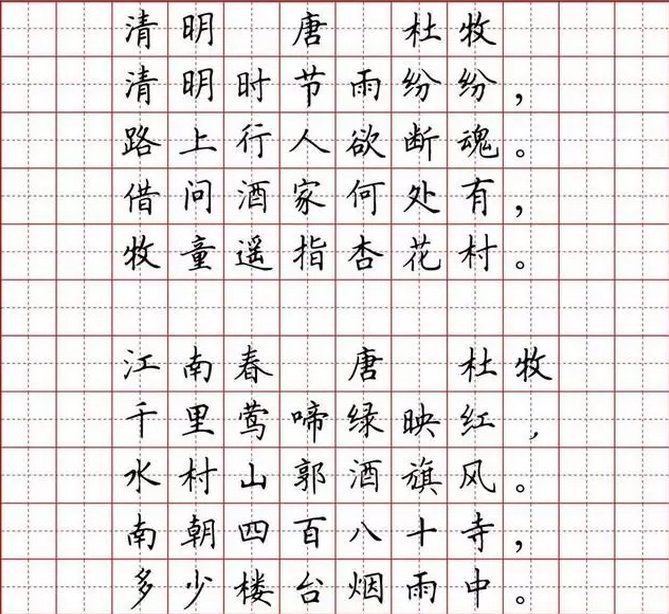 清明 唐 杜牧
清明时节雨纷纷，
路上行人欲断魂。
借问酒家何处有，
牧童遥指杏花村。
江南春 唐 杜牧
千里莺啼绿映红，
水村山郭酒旗风。
南朝四百八十寺，
多少楼台烟雨中。